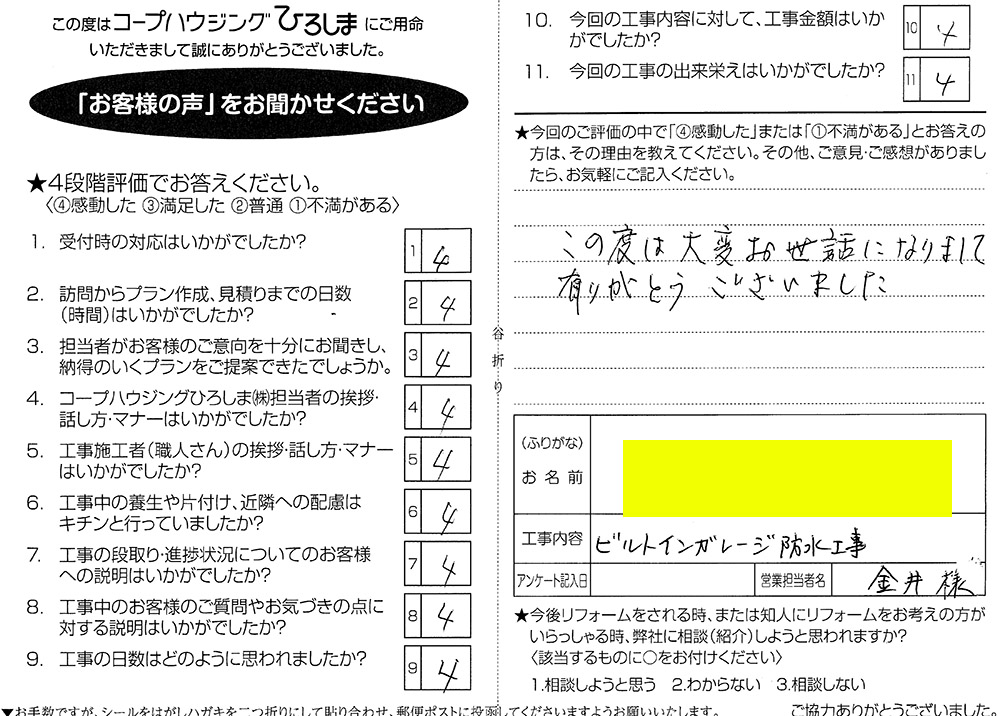 この度はコープハウジングひろしまにご用命
いただきまして誠にありがとうございました。
「お客様の声」をお聞かせください
★4段階評価でお答えください。
〈④感動した ③満足した ②普通 ①不満がある〉
1. 受付時の対応はいかがでしたか?
1 4
2. 訪問からプラン作成、見積りまでの日数
（時間）はいかがでしたか?
2 4
3. 担当者がお客様のご意向を十分にお聞きし、
納得のいくプランをご提案できたでしょうか。
3 4
4. コープハウジングひろしま㈱担当者の挨拶・
話し方・マナーはいかがでしたか?
4 4
5. 工事施工者（職人さん）の挨拶・話し方・マナー
はいかがでしたか?
5 4
6. 工事中の養生や片付け、近隣への配慮は
キチンと行っていましたか?
6 4
7. 工事の段取り・進捗状況についてのお客様
への説明はいかがでしたか?
7 4
8. 工事中のお客様のご質問やお気づきの点に
対する説明はいかがでしたか?
8 4
9. 工事の日数はどのように思われましたか?
9 4
▼お手数ですが、シールをはがしハガキを二つ折りにして貼り合わせ、郵便ポストに投函してくださいますようお願いいたします。
谷折り
10. 今回の工事内容に対して、工事金額はいか
がでしたか?
10 4
11. 今回の工事の出来栄えはいかがでしたか?
11 4
★今回のご評価の中で「④感動した」または「①不満がある」とお答えの
方は、その理由を教えてください。その他、ご意見・ご感想がありまし
たら、お気軽にご記入ください。
この度は大変お世話になりまして
有りがとうございました
（ふりがな）
お名前
工事内容 ビルトインガレージ防水工事
アンケート記入日 営業担当者名 金井様
★今後リフォームをされる時、または知人にリフォームをお考えの方が
いらっしゃる時、弊社に相談（紹介）しようと思われますか?
〈該当するものに○をお付けください〉
1.相談しようと思う 2.わからない 3.相談しない
ご協力ありがとうございました。